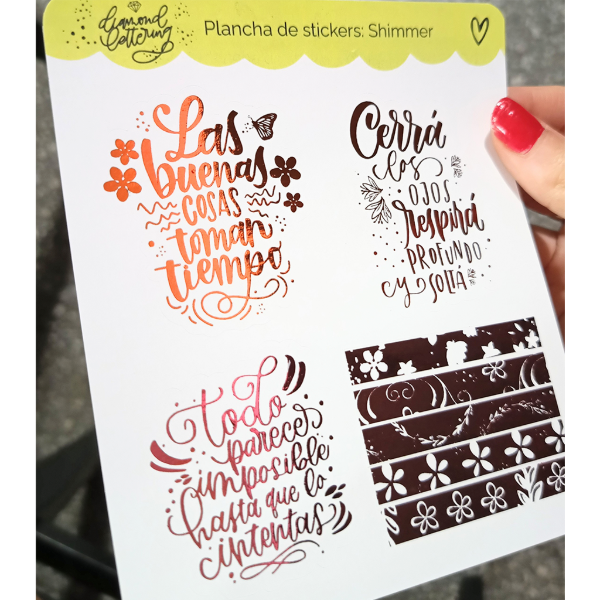 diamond
lettering
Plancha de stickers: Shimmer
Las
buenas
COSAS
toman
tiempo
Cerrá
los
OJOS
respirá
PROFUNDO
y SOLTÁ
todo
parece
imposible
hasta que lo
intentas